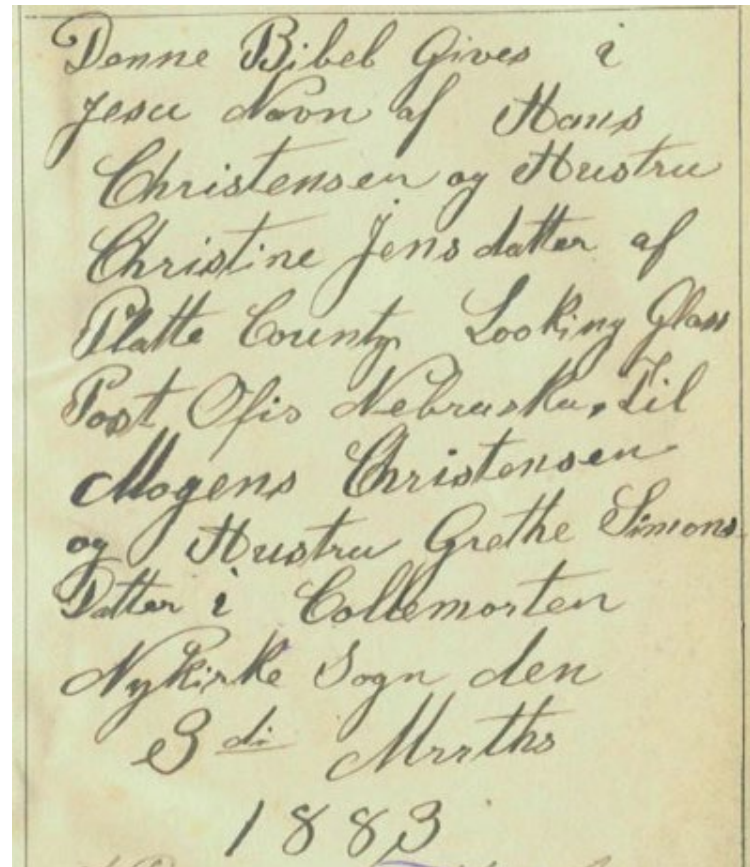 Denne Bibel Gives i
Jesu Navn af Hans
Christensen og Hustru
Christine Jens datter af
Platte County Looking Glass
Post Ofis Nebraska, Til
Mogens Christensen
og Hustru Grethe Simons
Datter i Collemorten
Nykirke Sogn den
3 di Marths
1883